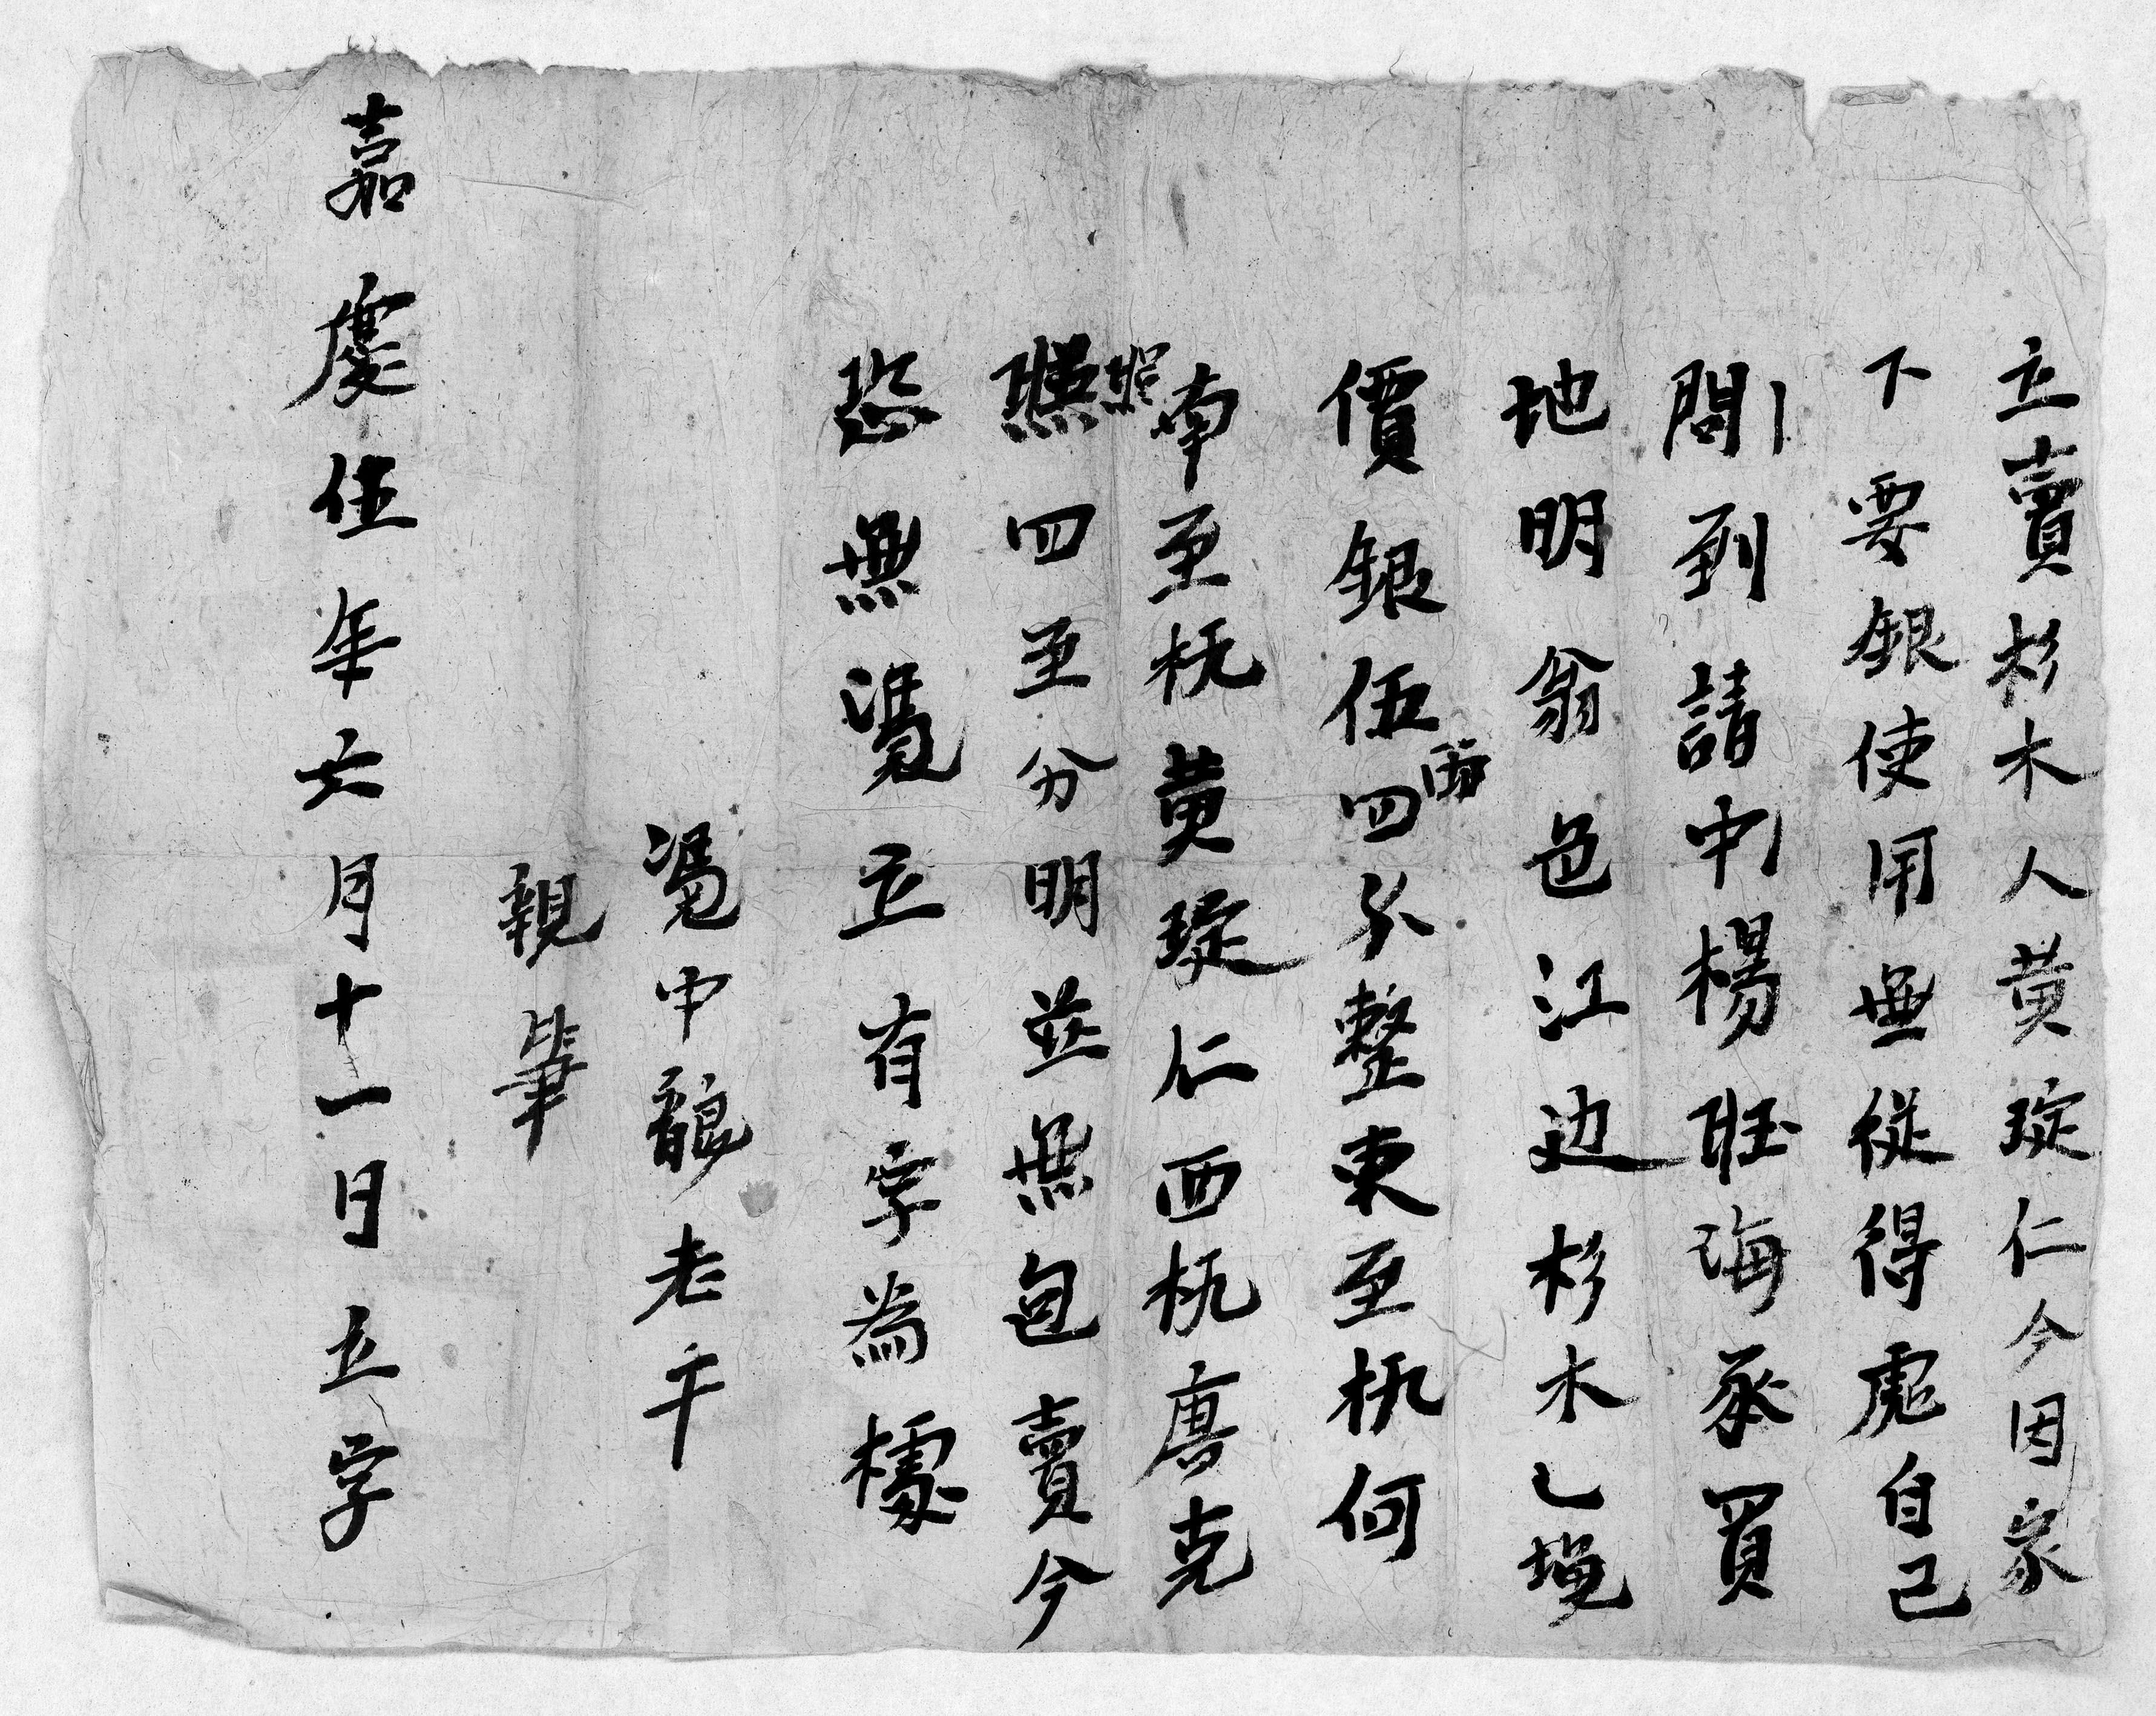 立賣杉木人黄琁仁今因家
下要銀使用無從得處自己
問到請中楊旺海承買
地明翁色江边杉木乚塊
價銀伍兩四分整東至杭何
南至杭黄琁仁西杭唐克
照四至分明並無包賣今
恐無凴立有字為據
凴中龍老千
親筆
嘉慶伍年六月十一日立字